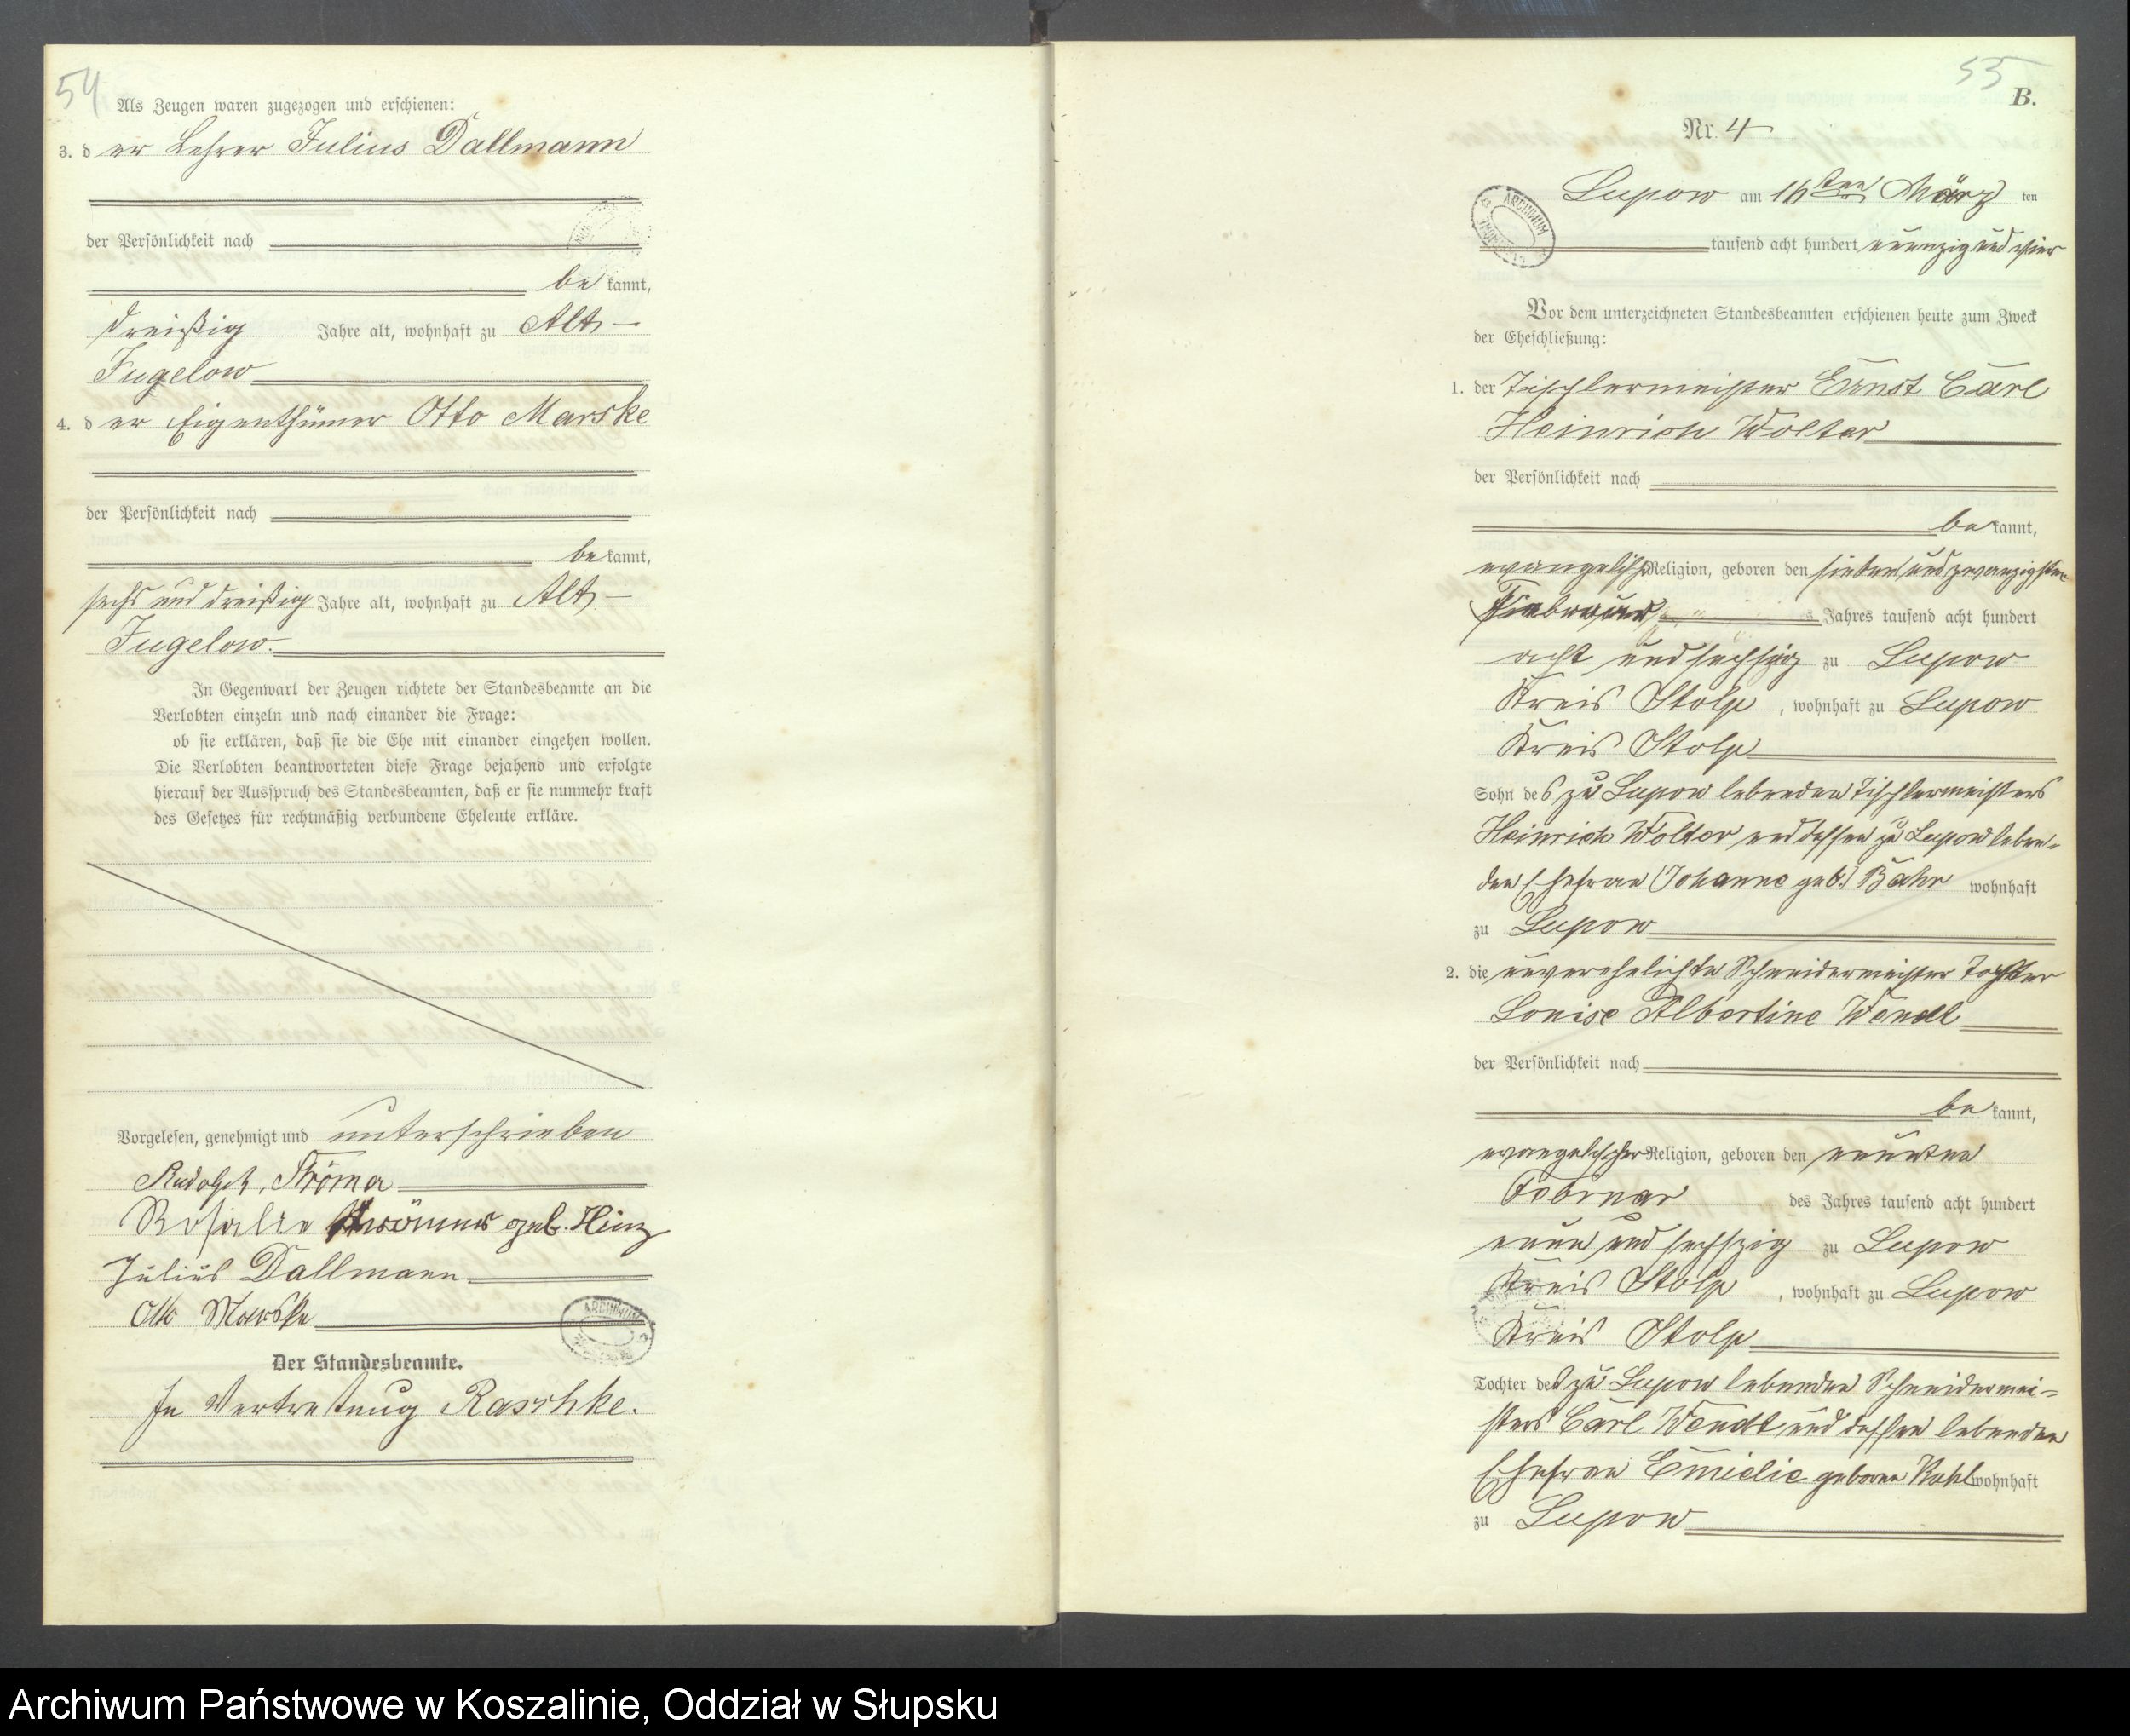 54
Als Zeugen waren zugezogen und erschienen:
3. der Lehrer Julius Dallmann
der Persönlichkeit nach
bekannt,
dreißig Jahre alt, wohnhaft zu Alt-
Jugelow
4. der Eigenthümer Otto Marske
der Persönlichkeit nach
bekannt,
sechs und dreißig Jahre alt, wohnhaft zu Alt-
Jugelow.
In Gegenwart der Zeugen richtete der Standesbeamte an die
Verlobten einzeln und nach einander die Frage:
ob sie erklären, daß sie die Ehe mit einander eingehen wollen.
Die Verlobten beantworteten diese Frage bejahend und erfolgte
hierauf der Ausspruch des Standesbeamten, daß er sie nunmehr kraft
des Gesetzes für rechtmäßig verbundene Eheleute erkläre.
Vorgelesen, genehmigt und unterschrieben
Rudolph
geb. Hinz
Julius Dallmann
Otto Marske
Der Standesbeamte.
In Vertretung Raschke.
55
B.
Nr. 4
Lupow am 16ten März ten
tausend acht hundert neunzig und vier
Vor dem unterzeichneten Standesbeamten erschienen heute zum Zweck
der Eheschließung:
1. der Tischlermeister Ernst Carl
Heinrich Wolter
der Persönlichkeit nach
bekannt,
evangelischer Religion, geboren den sieben und zwanzigsten
Februar Jahres tausend acht hundert
acht und sechszig zu Lupow
Kreis Stolp, wohnhaft zu Lupow
Kreis Stolp
Sohn des zu Lupow lebenden Tischlermeisters
Heinrich Wolter und dessen zu Lupow leben-
den Ehefrau Johanne geb. Bähr wohnhaft
zu Lupow
2. die unverehelichte Schneidermeister Tochter
Louise Albertine Wendt
der Persönlichkeit nach
bekannt,
evangelischer Religion, geboren den neunten
Februar des Jahres tausend acht hundert
neun und sechszig zu Lupow
Kreis Stolp, wohnhaft zu Lupow
Kreis Stolp
Tochter des zu Lupow lebenden Schneidermei-
sters Carl Wendt und dessen lebenden
Ehefrau Emielie geborne wohnhaft
zu Lupow
Archiwum Państwowe w Koszalinie, Oddział w Słupsku